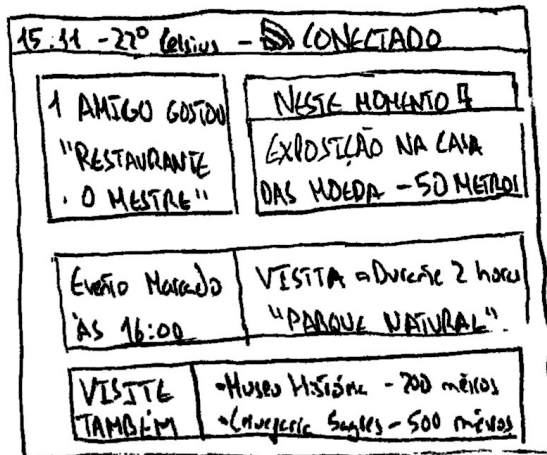 15:11 - 22º Celsius - CONECTADO
1 AMIGO GOSTOU
"RESTAURANTE
O MESTRE"
NESTE MOMENTO
EXPOSIÇÃO NA CASA
DAS MOEDA - 50 METROS
Evento Marcado
ÀS 16:00
VISITA Durante 2 horas
"PARQUE NATURAL".
VISITE
TAMBÉM
Museu História - 200 metros
Cervejaria Sagres - 500 metros